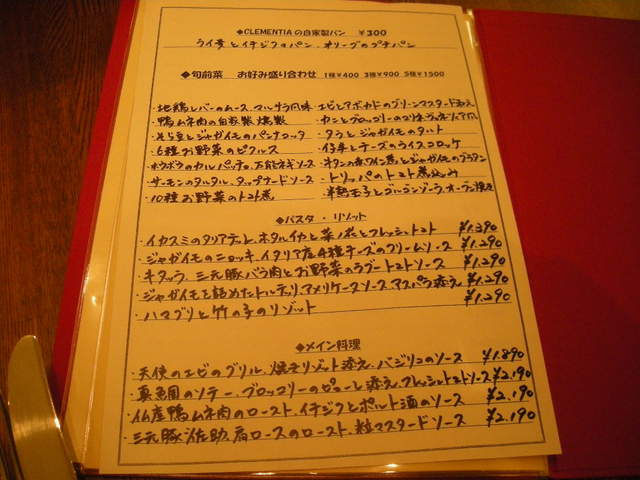 ◆CLEMENTIAの自家製パン ¥300
ライ麦とイチジクのパン、オリーブのプチパン
◆旬前菜 お好み盛り合わせ 1種¥400 3種¥900 5種¥1500
・地鶏レバーのムース、マルサラ風味
・エビとアボカドのグリーンマスタード和え
・鴨ムネ肉の自家製燻製
・カニとブロッコリーの
・そら豆とジャガイモのパンナコッタ
・タラとジャガイモのタルト
・6種お野菜のピクルス
・仔牛とチーズのライスコロッケ
・ホウボウのカルパッチョ、万能ネギソース
・牛タンの赤ワイン煮とジャガイモのグラタン
・サーモンのタルタル、タップナードソース
・トリッパのトマト煮込み
・10種お野菜のトマト煮
・半熟玉子とゴルゴンゾーラ、オーブン焼き
◆パスタ・リゾット
・イカスミのタリアテッレ、ホタルイカと菜ノ花とフレッシュトマト ¥1.390
・ジャガイモのニョッキ、イタリア産4種チーズのクリームソース ¥1.290
・キタッラ、三元豚バラ肉とお野菜のラグートマトソース ¥1.290
・ジャガイモを詰めたトルテッリ、アメリケーヌソース、アスパラ添え ¥1.290
・ハマグリと竹の子のリゾット ¥1.290
◆メイン料理
・天使のエビのグリル、焼きリゾット添え、バジリコのソース ¥1.890
・真鯛のソテー、ブロッコリーのピューレ添え、フレッシュトマトソース ¥2.190
・仏産鴨ムネ肉のロースト、イチジクとポルト酒のソース ¥2.190
・三元豚 肩ロースのロースト、粒マスタードソース ¥2.190